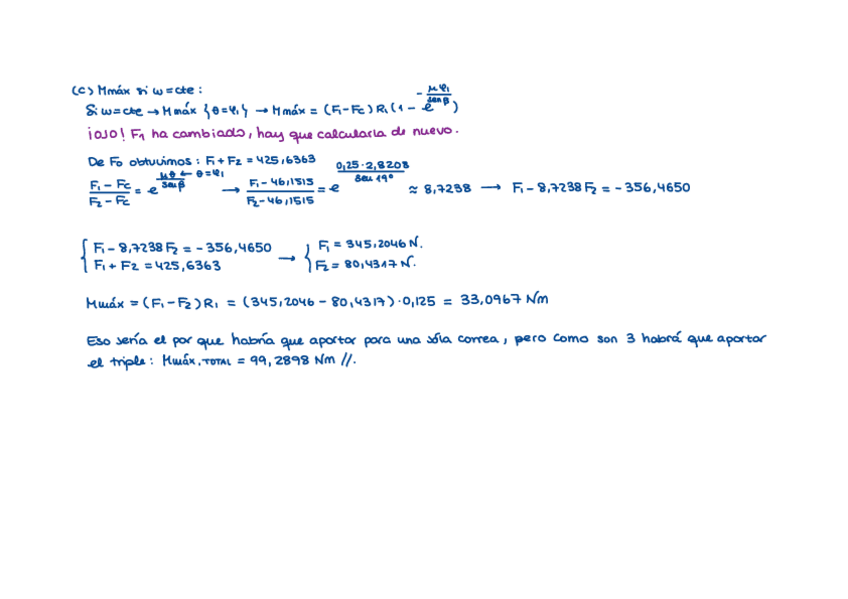 (c) Mmáx si ω=cte:
Si ω=cte → Mmáx {θ=φ₁} → Mmáx = (F₁-Fc) R₁ (1 - e^(-μφ₁/senβ))
¡OJO! F₁ ha cambiado, hay que calcularla de nuevo.
De F₀ obtuvimos: F₁+F₂ = 425,6363
(F₁-Fc)/(F₂-Fc) = e^(μθ/senβ) ← θ=φ₁ → (F₁-46,1515)/(F₂-46,1515) = e^(0,25·2,8208/sen 19º) ≈ 8,7238 → F₁-8,7238F₂ = -356,4650
{ F₁-8,7238F₂ = -356,4650 → { F₁ = 345,2046 N.
F₁+F₂ = 425,6363 F₂ = 80,4317 N.
Mmáx = (F₁-F₂)R₁ = (345,2046 - 80,4317)·0,125 = 33,0967 Nm
Eso sería el par que habría que aportar para una sóla correa, pero como son 3 habrá que aportar
el triple: Mmáx,TOTAL = 99,2898 Nm //.